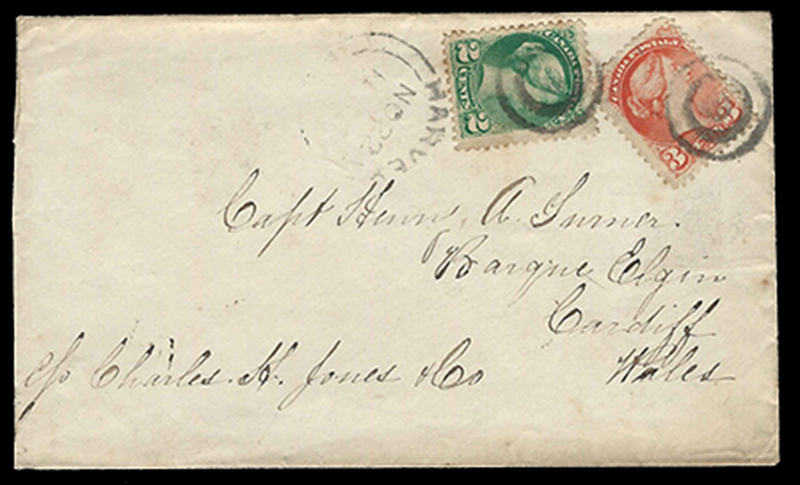 2 CENTS 2
CANADA POSTAGE
3
HARVE
NO 22
Capt Henry A. Turner.
Barque Elgin
Cardiff
Wales
c/o Charles. H. Jones & Co